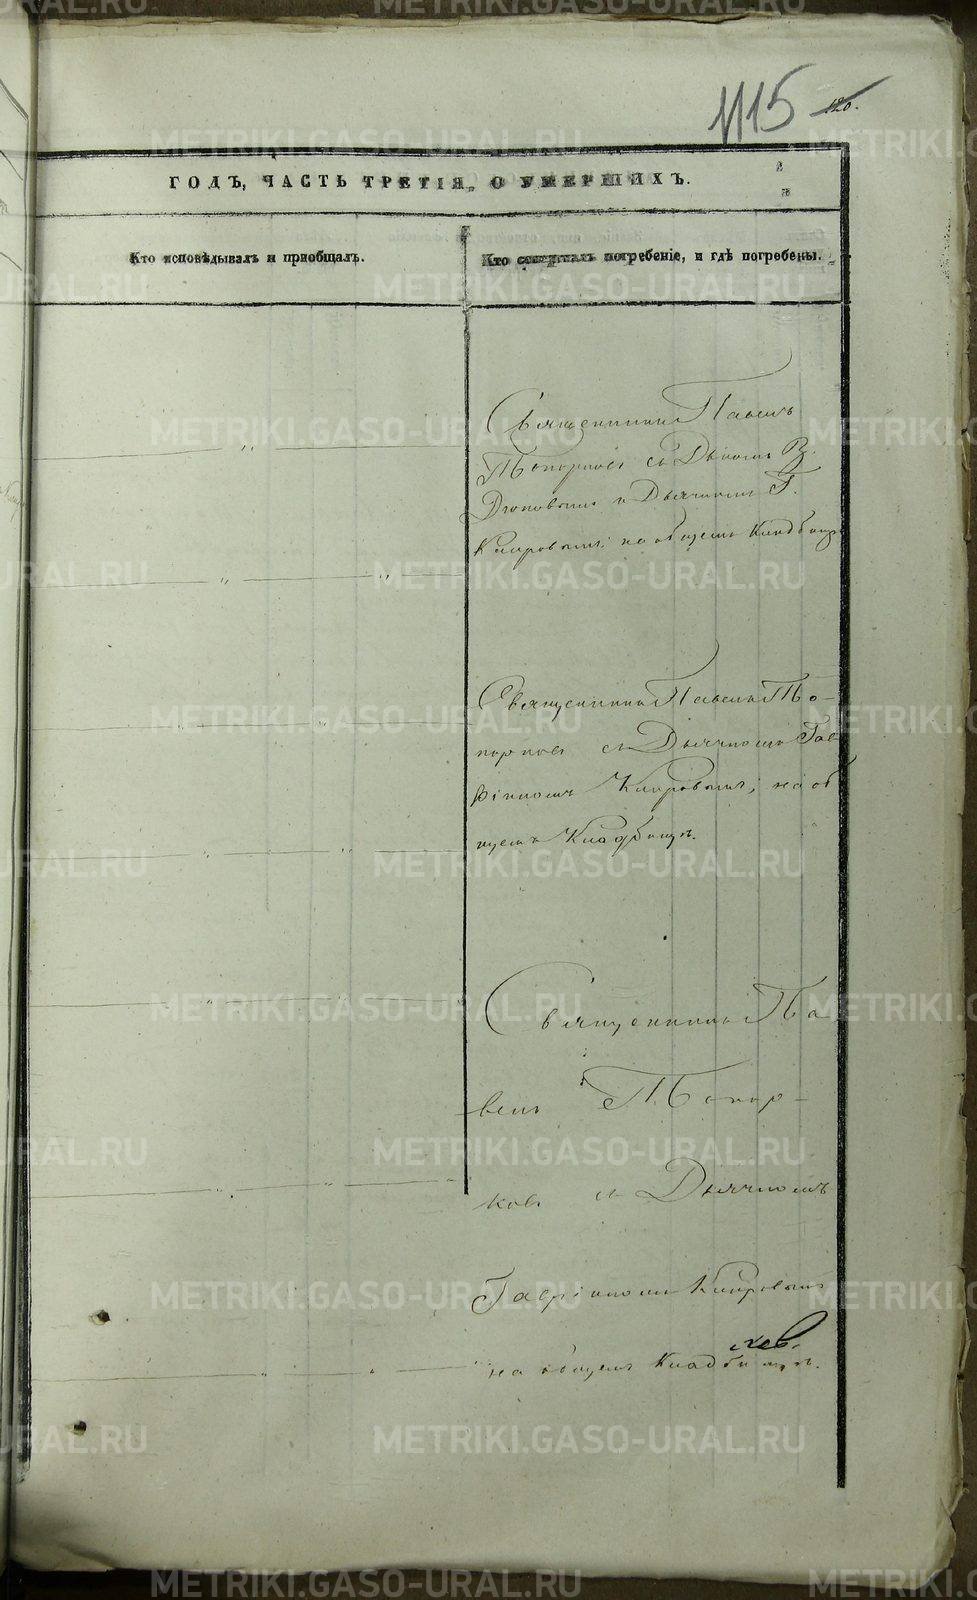 1115 120.
ГОДЪ, ЧАСТЬ ТРЕТІЯ, О УМЕРШИХЪ.
Кто исповѣдывалъ и пріобщалъ.
Кто совершалъ погребеніе, и гдѣ погребены.
Священникъ Павелъ
Топорковъ съ Дьякон. В.
и Дьячкомъ Г.
Каировымъ; на общемъ Кладбищѣ
Священникъ Павелъ То-
порковъ съ Дьячкомъ Гав
ріиломъ Каировымъ; на об
щемъ Кладбищѣ.
Священникъ Па
велъ Топор-
ковъ съ Дьячкомъ
Гавріиломъ Каировымъ
на общемъ Кладбищѣ.
METRIKI.GASO-URAL.RU